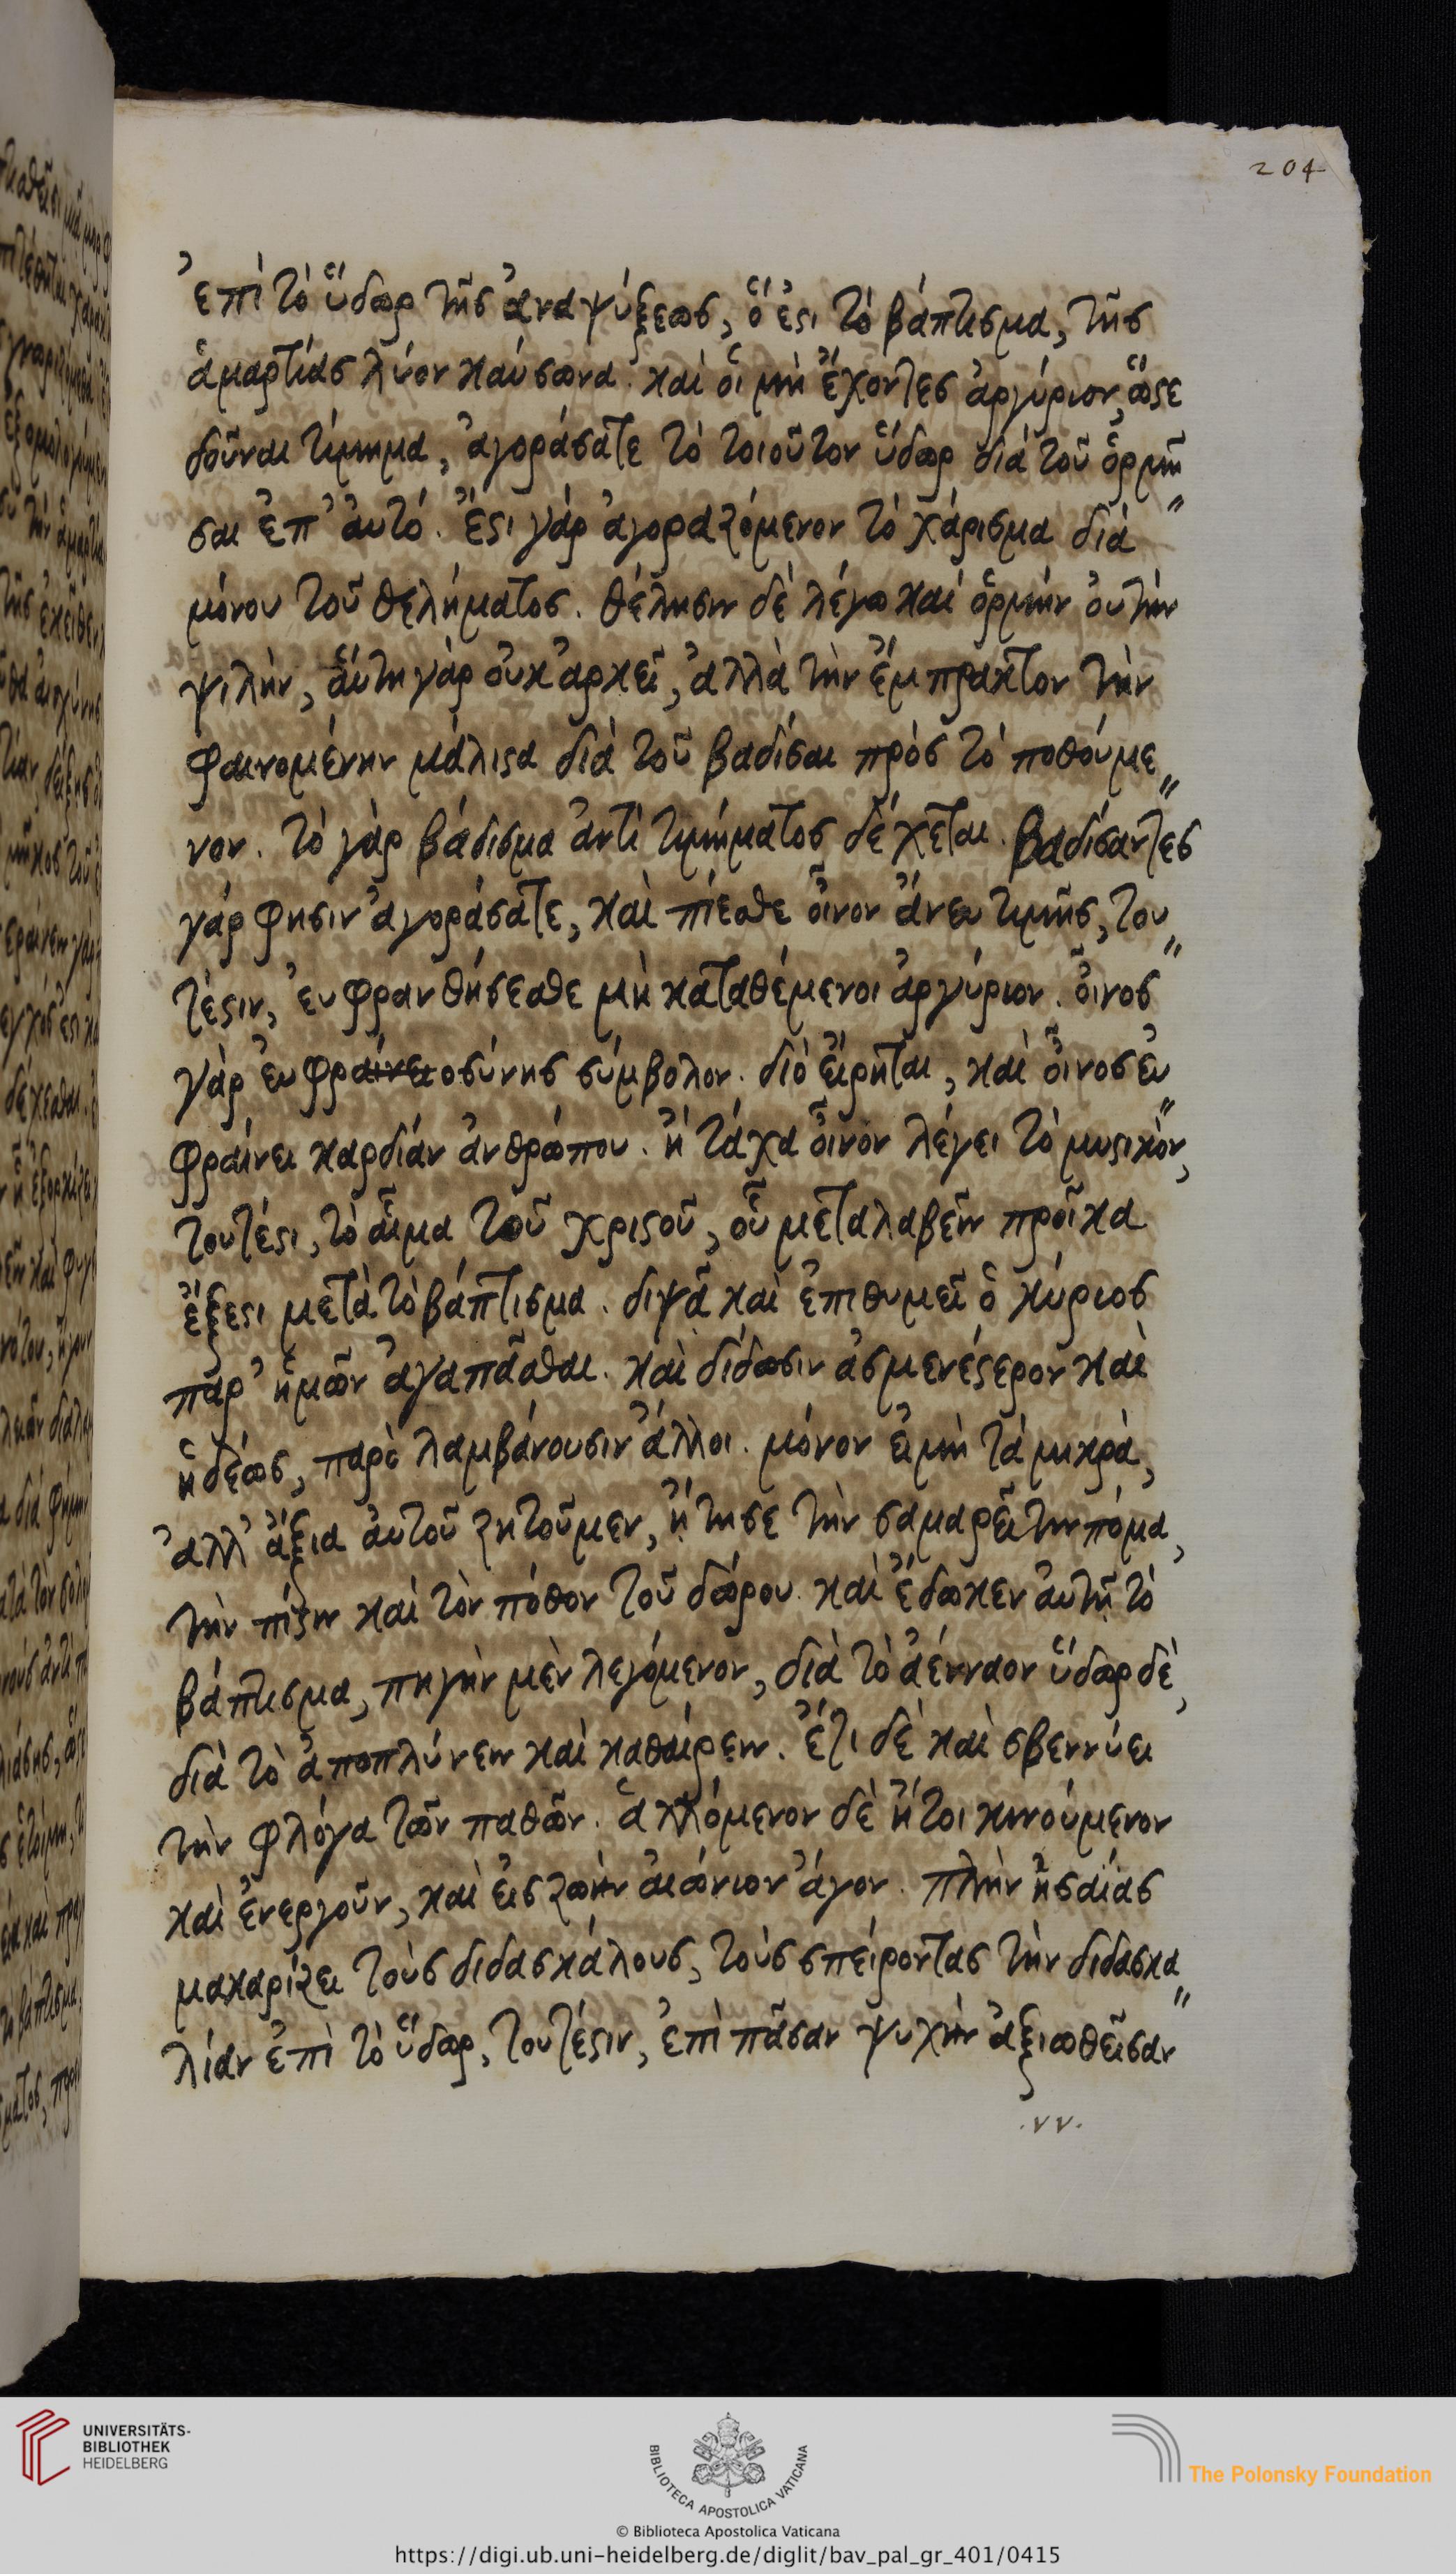 204
ἐπὶ τὸ ὕδωρ τῆς ἀναψύξεως, ὅ ἐστι τὸ βάπτισμα, τῆς
ἁμαρτίας λύον καύσωνα. καὶ οἱ μὴ ἔχοντες ἀργύριον, ὥστε
δοῦναι τίμημα, ἀγοράσατε τὸ τοιοῦτον ὕδωρ διὰ τοῦ ὁρμῆ
σαι ἐπ' ἀυτό. ἔστι γὰρ ἀγοραζόμενον τὸ χάρισμα διὰ
μόνου τοῦ θελήματος. θέλησιν δὲ λέγω καὶ ὁρμὴν ὀυ τὴν
ψιλὴν, ἅυτη γὰρ ὀυκ ἀρκεῖ, ἀλλὰ τὴν ἔμπρακτον τὴν
φαινομένην μάλιστα διὰ τοῦ βαδίσαι πρὸς τὸ ποθούμε
νον. τὸ γὰρ βάδισμα ἀντὶ τιμήματος δέχεται. βαδίσαντες
γάρ φησιν ἀγοράσατε, καὶ πίεσθε ὄινον ἄνευ τιμῆς, του
τέστιν, ἐυφρανθήσεσθε μὴ καταθέμενοι ἀργύριον. ὄινος
γὰρ ἐυφραινειοσύνης σύμβολον. διὸ ἔιρηται, καὶ ὄινος ἐυ
φραίνει καρδίαν ἀνθρώπου. ἢ τάχα ὄινον λέγει τὸ μυστικὸν,
τουτέστι, τὸ ἅιμα τοῦ χριστοῦ, ὅυ μεταλαβεῖν προῖκα
ἔξεστι μετὰ τὸ βάπτισμα. διψᾶ καὶ ἐπιθυμεῖ ὁ κύριος
παρ' ἡμῶν ἀγαπᾶσθαι. καὶ δίδωσιν ἀσμενέστερον καὶ
ἡδέως, παρὸ λαμβάνουσιν ἄλλοι. μόνον ἐι μὴ τὰ μικρὰ,
ἀλλ' ἄξια ἀυτοῦ ζητοῦμεν, ἤτησε τὴν σαμαρεῖτιν πόμα,
τὴν πίστιν καὶ τὸν πόθον τοῦ δώρου. καὶ ἔδωκεν ἀυτῆ τὸ
βάπτισμα, πηγὴν μὲν λεγόμενον, διὰ τὸ ἀένναον ὕδωρ δὲ,
διὰ τὸ ἀποπλύνειν καὶ καθαίρειν. ἔτι δὲ καὶ σβεννύει
τὴν φλόγα τῶν παθῶν. ἁλλόμενον δὲ ἤτοι κινούμενον
καὶ ἐνεργοῦν, καὶ ἐις ζωὴν ἀιώνιον ἄγον. πλὴν ἠσαΐας
μακαρίζει τοὺς διδασκάλους, τοὺς σπείροντας τὴν διδασκα
λίαν ἐπὶ τὸ ὕδωρ, τουτέστιν, ἐπὶ πᾶσαν ψυχὴν ἀξιωθεῖσαν
.νν.
UNIVERSITÄTS-
BIBLIOTHEK
HEIDELBERG
BIBLIOTECA APOSTOLICA VATICANA
The Polonsky Foundation
© Biblioteca Apostolica Vaticana
https://digi.ub.uni-heidelberg.de/diglit/bav_pal_gr_401/0415